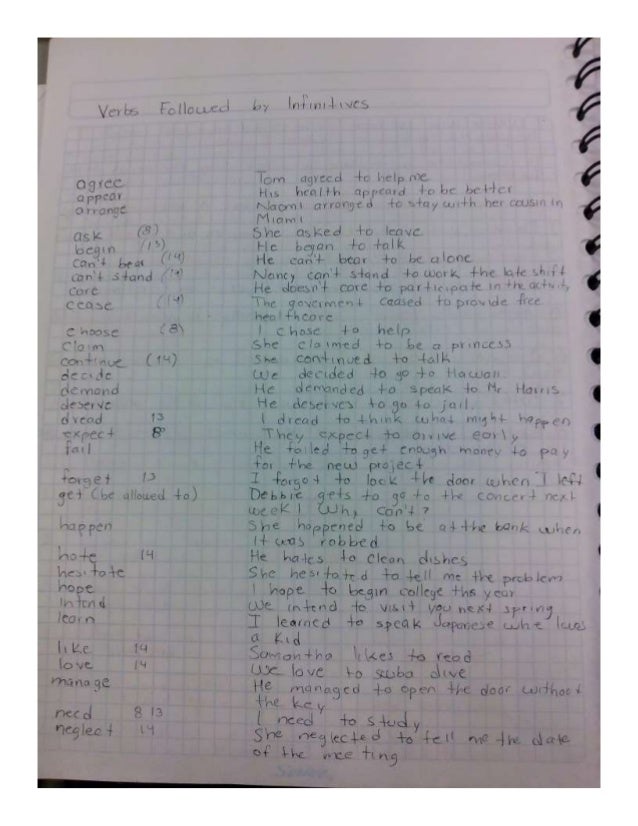 Verbs Followed by Infinitives
agree Tom agreed to help me
appear His health appeard to be better
arrange Naomi arranged to stay with her cousin in
Miami
ask (8) She asked to leave
begin (13) He began to talk
can't bear (14) He can't bear to be alone
can't stand (14) Nancy can't stand to work the late shift
care He doesn't care to participate in the activity
cease (14) The goverment ceased to provide free
healthcare
choose (8) I chose to help
claim She claimed to be a princess
continue (14) She continued to talk
decide We decided to go to Hawaii.
demand He demanded to speak to Mr. Harris.
deserve He deserves to go to jail.
dread 13 I dread to think what might happen
expect 8 They expect to arrive early
fail He failed to get enough money to pay
for the new project
forget 13 I forgot to lock the door when I left
get (be allowed to) Debbie gets to go to the concert next
week! Why can't?
happen She happened to be at the bank when
It was robbed
hate 14 He hates to clean dishes
hesitate She hesitated to tell me the problem
hope I hope to begin college ths year
Intend We intend to visit you next spring
learn I learned to speak Japanese
a kid
like 14 Samantha likes to read
love 14 We love to scuba dive
manage He managed to open the door without
the key
need 8 13 I need to study
neglect 14 She neglected to tell me the date
of the meeting